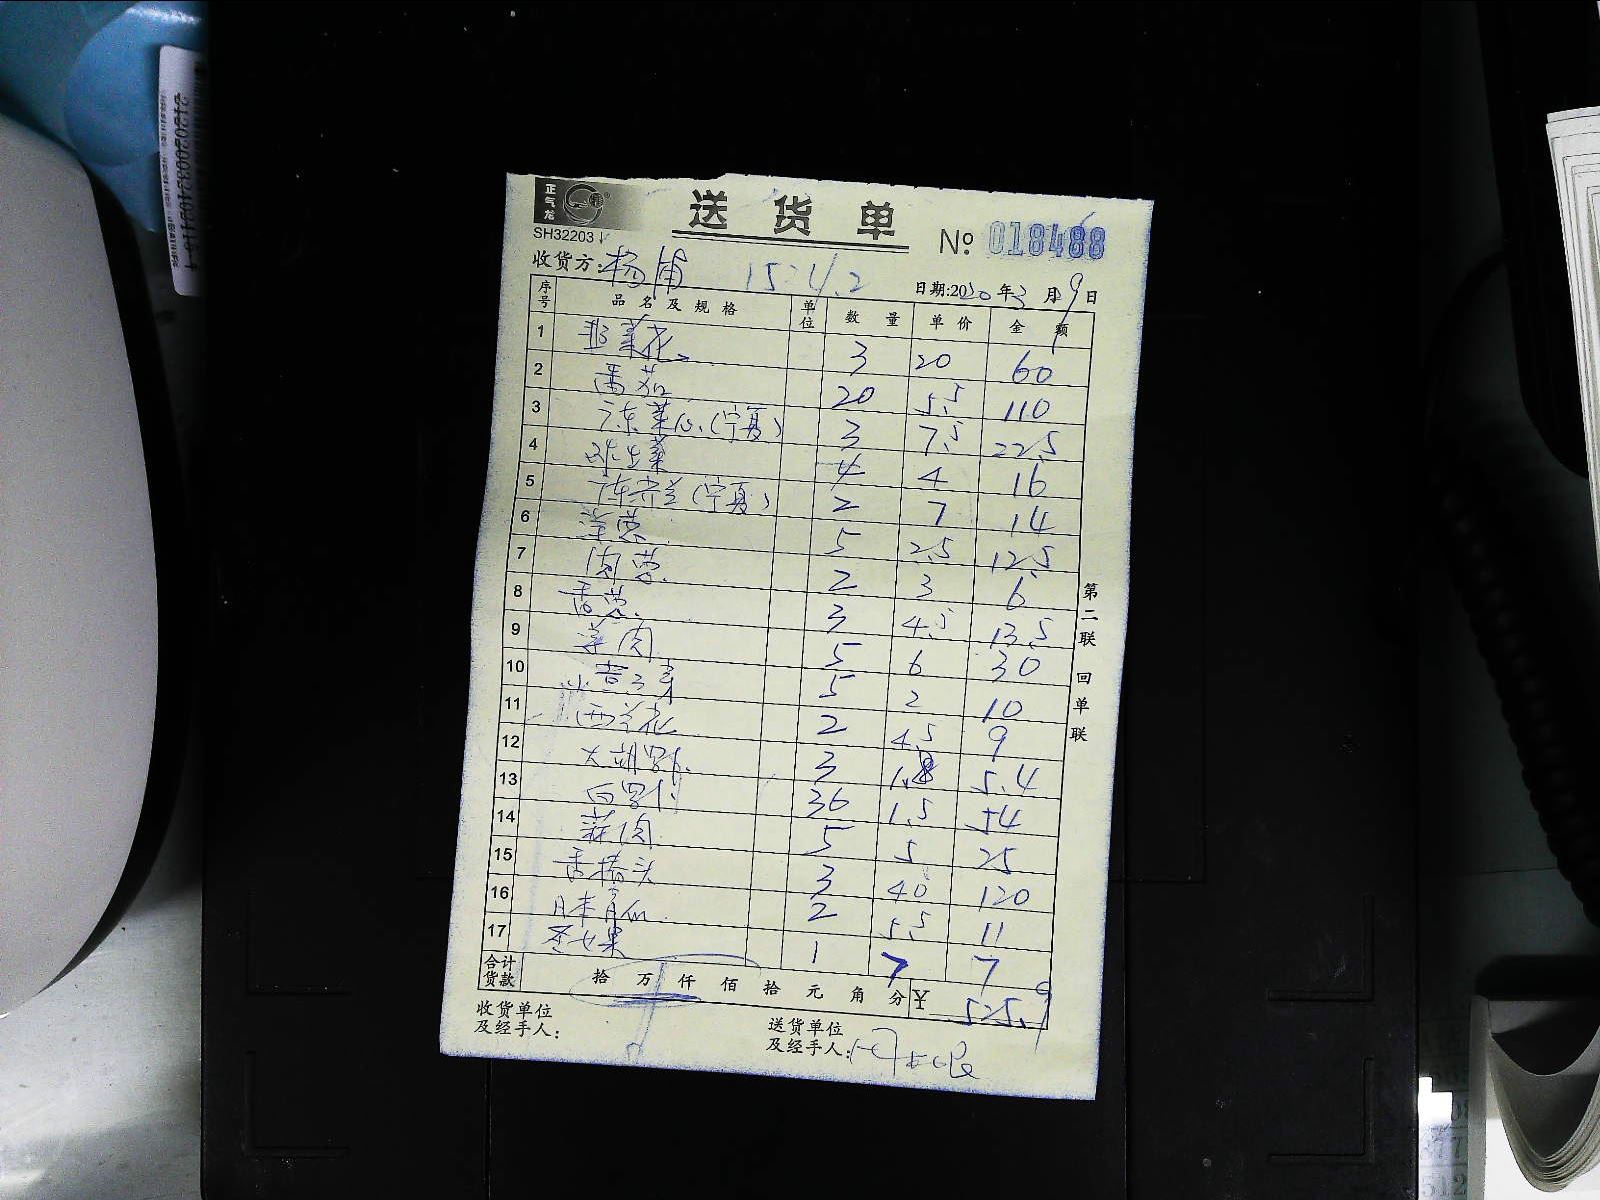 正气龙
送货单
SH32203
No. 018488
收货方: 杨浦 15:4.2 日期:2020年3月9日
序号 品名及规格 单位 数量 单价 金额
1 韭菜花 3 20 60
2 番茄 20 5.5 110
3 广东菜心(宁夏) 3 7.5 22.5
4 球生菜 4 4 16
5 广东芥兰(宁夏) 2 7 14
6 洋葱 5 2.5 12.5
7 茼蒿 2 3 6
8 香葱 3 4.5 13.5
9 姜肉 5 6 30
10 黄豆芽 5 2 10
11 西兰花 2 4.5 9
12 大胡萝卜 3 1.8 5.4
13 白萝卜 36 1.5 54
14 蒜肉 5 5 25
15 香椿头 3 40 120
16 本黄瓜 2 5.5 11
17 圣女果 1 7 7
合计货款 拾 万 仟 佰 拾 元 角 分 ¥ 525.9
第二联 回单联
收货单位及经手人:
送货单位及经手人:
2120200324024184-1